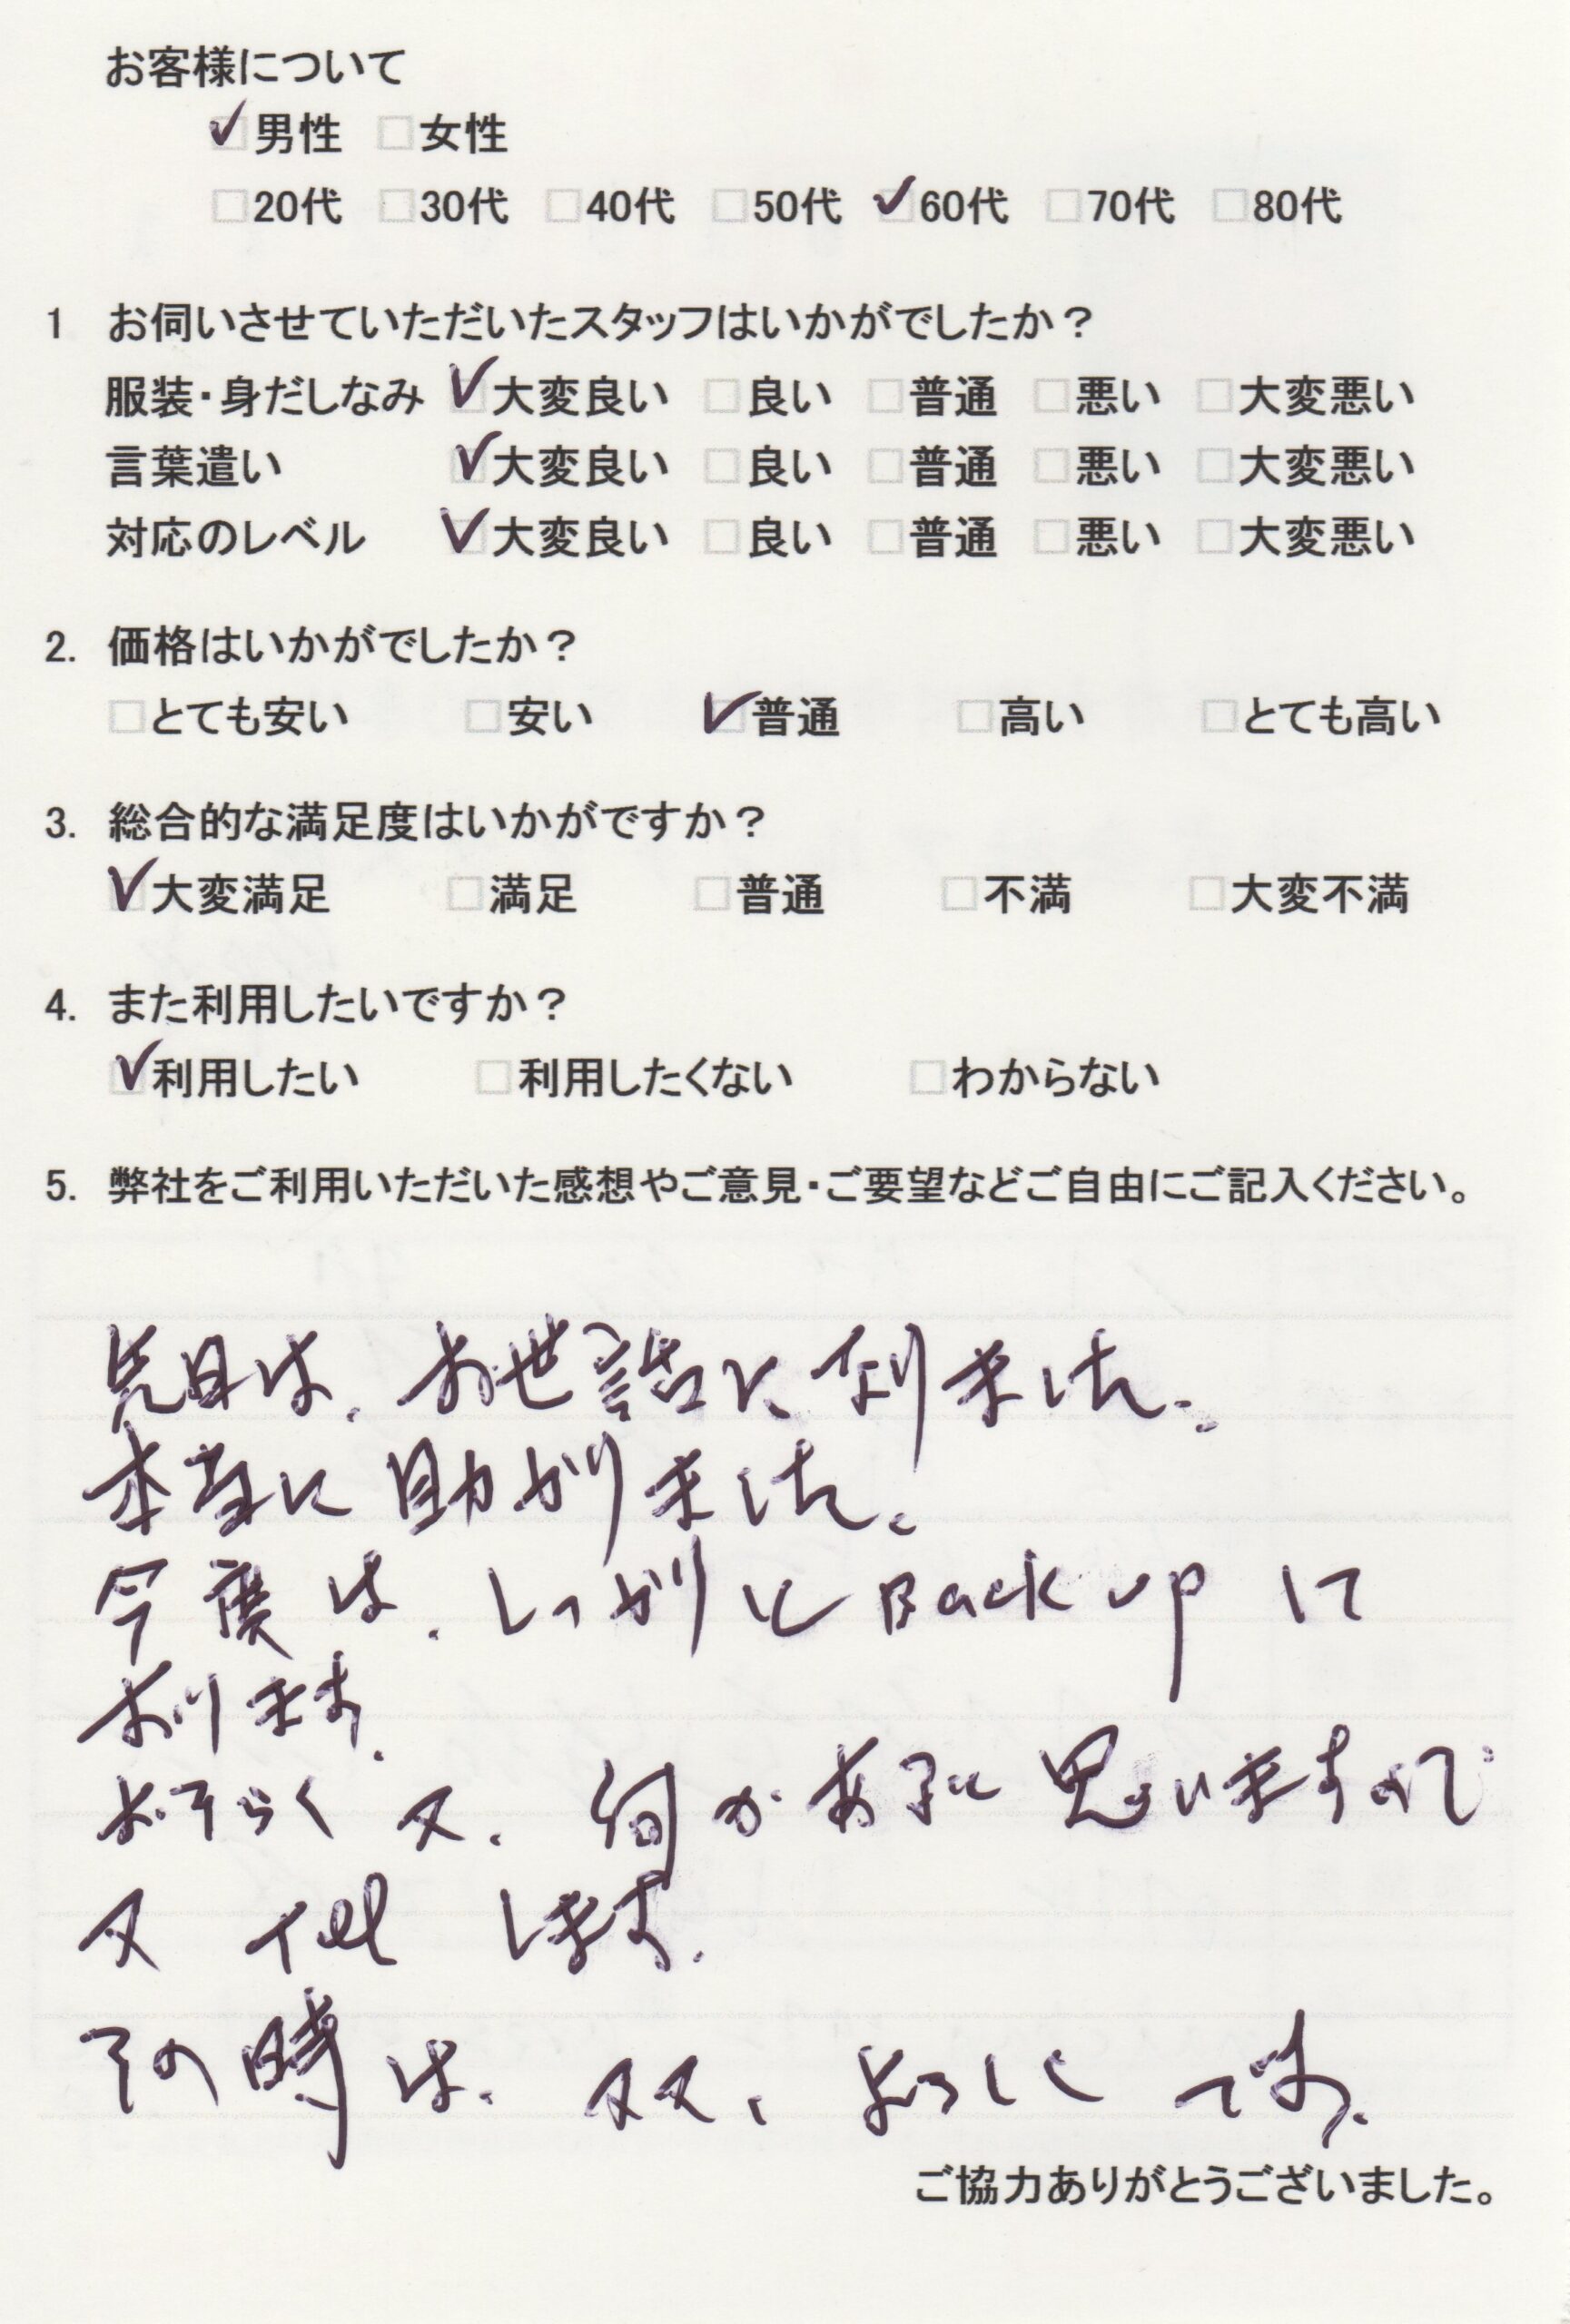 お客様について
☑男性 □女性
□20代 □30代 □40代 □50代 ☑60代 □70代 □80代
1 お伺いさせていただいたスタッフはいかがでしたか？
服装・身だしなみ ☑大変良い □良い □普通 □悪い □大変悪い
言葉遣い ☑大変良い □良い □普通 □悪い □大変悪い
対応のレベル ☑大変良い □良い □普通 □悪い □大変悪い
2. 価格はいかがでしたか？
□とても安い □安い ☑普通 □高い □とても高い
3. 総合的な満足度はいかがですか？
☑大変満足 □満足 □普通 □不満 □大変不満
4. また利用したいですか？
☑利用したい □利用したくない □わからない
5. 弊社をご利用いただいた感想やご意見・ご要望などご自由にご記入ください。
先日は、お世話になりました。
本当に助かりました。
今度は、しっかりと Back up して
おります。
おそらく又、何かあると思いますので
又 Tel します。
その時は、又又、よろしく です。
ご協力ありがとうございました。